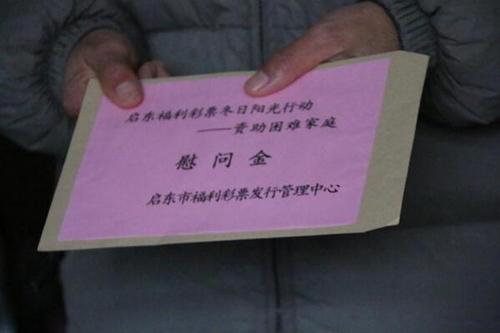 启东福利彩票冬日阳光行动
——资助困难家庭
慰问金
启东市福利彩票发行管理中心